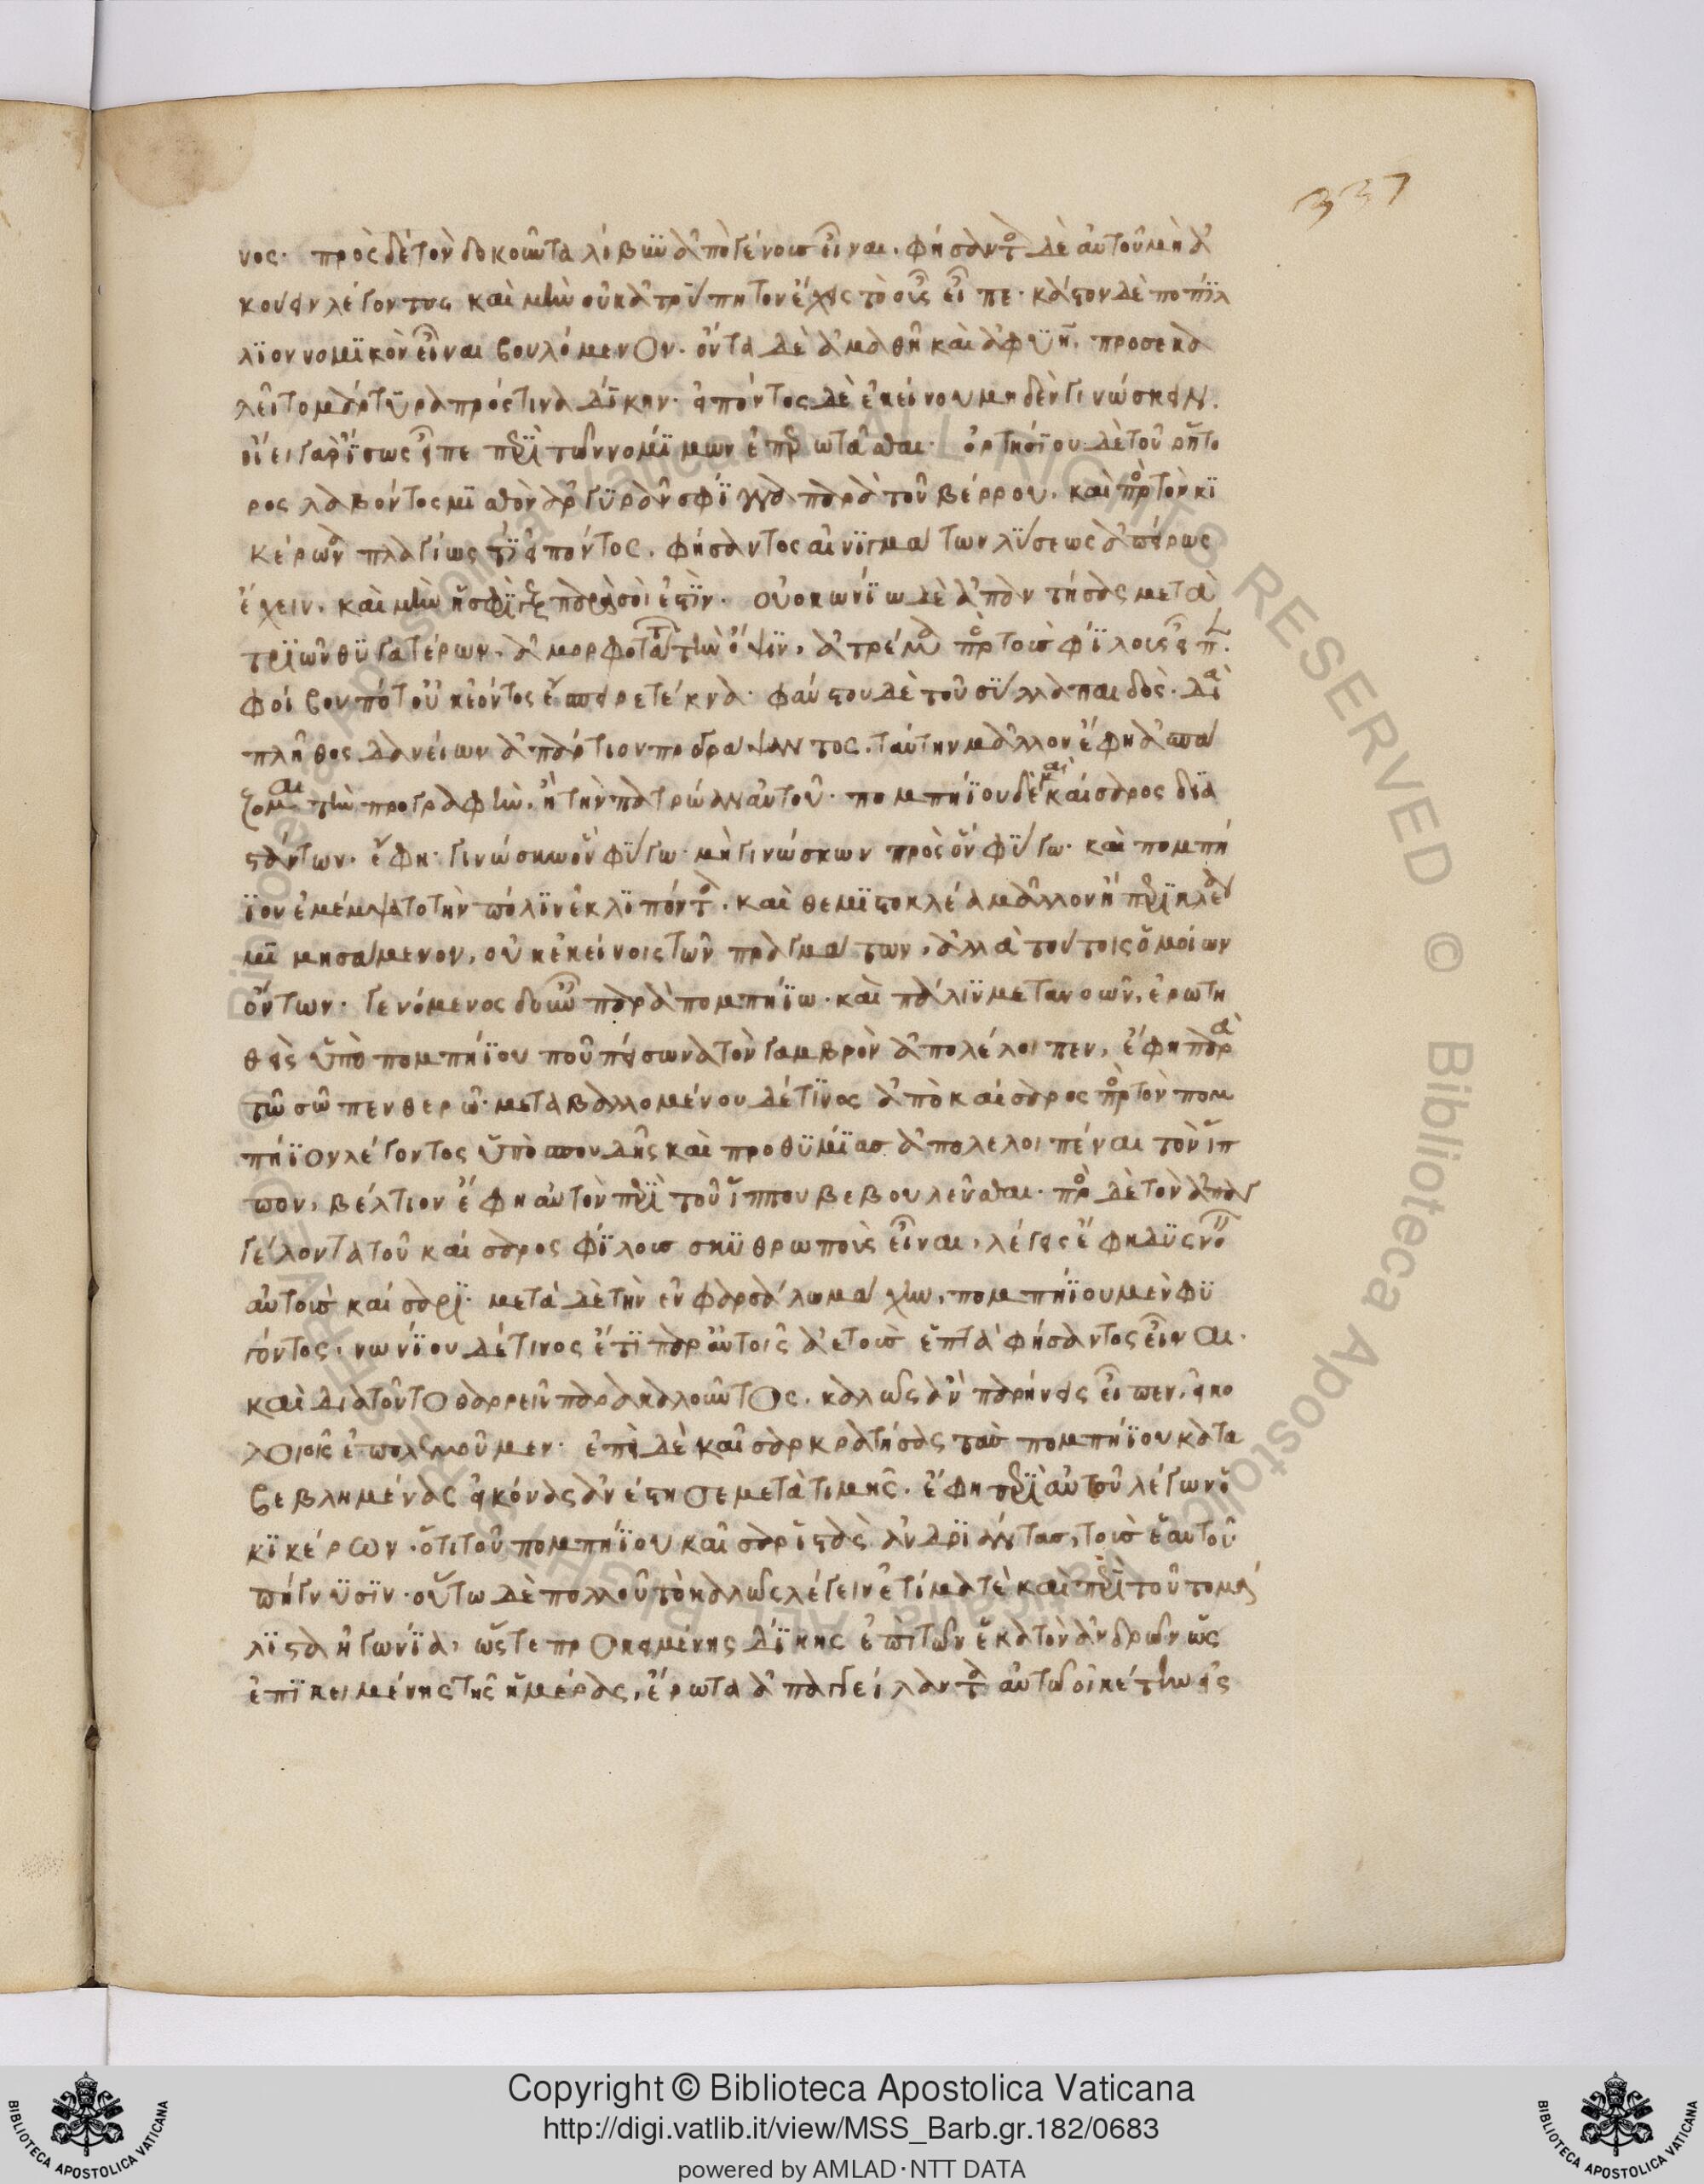 337
νος· πρὸς δὲ τὸν δοκοῦντα λίβυν ἀπὸ γένους εἶναι. φήσαντος δὲ αὐτοῦ μὴ ἀ
κούειν λέγοντος καὶ μὴν οὐκ ἀτρύπητον ἔχεις τὸ οὖς εἶπε· κάστον δὲ ποπίλ
λϊον νομϊκὸν εἶναι βουλόμενον· ὄντα δὲ ἀμαθῆ καὶ ἀφυῆ. προσεκα
λεῖτο μάρτυρα πρός τινα δίκην· εἰπόντος δὲ ἐκείνου μηδὲν γινώσκειν.
οἴει γὰρ ἴσως εἶπε περὶ τῶν νομίμων ἐπερωτᾶσθαι· ὁρτησίου δὲ τοῦ ῥήτο
ρος λαβόντος μισθὸν ἀργυρᾶν σφίγγα παρὰ τοῦ βέρρου. καὶ πρὸς τὸν κϊ
κέρωνα πλαγίως τι εἰπόντος. φήσαντος αἰνιγμάτων λύσεως ἀπείρως
ἔχειν. καὶ μὴν ἡ σφὶγξ παρὰ σοί ἐστϊν. οὐοκωνίω δὲ ἀπαντήσας μετὰ
τριῶν θυγατέρων. ἀμορφοτάτων τὴν ὄψιν. ἀτρέμα πρὸς τοὺς φίλους εἶπεν.
φοίβου ποτ' οὐκ ἐόντος ἔσπειρε τέκνα· φαύστου δὲ τοῦ σύλλα παιδὸς. διὰ
πλῆθος δανείων ἀπάρτιον προγράψαντος. ταύτην μᾶλλον ἔφη ἀσπά
ζομαι τὴν προγραφὴν. ἢ τὴν πατρώαν αὐτοῦ· πομπηΐου δὲ καὶ καίσαρος δϊα
στάντων. ἔφη· γινώσκω ὃν φύγω· μὴ γινώσκων πρὸς ὃν φύγω· καὶ πομπή
ϊον ἐμέμψατο τὴν πόλϊν ἐκλϊπόντα. καὶ θεμϊστοκλέα μᾶλλον ἢ περϊκλέα
μϊμησάμενον, οὐκ ἐκείνοις τῶν πραγμάτων, ἀλλὰ τούτοις ὁμοίων
ὄντων· γενόμενος δ' οὖν παρὰ πομπηΐω· καὶ πάλϊν μετανοῶν, ἐρωτη
θεὶς ὑπὸ πομπηΐου ποῦ πείσωνα τὸν γαμβρὸν ἀπολέλοιπεν, ἔφη παρὰ
τῶ σῶ πενθερῶ· μεταβαλλομένου δέ τϊνος ἀπὸ καίσαρος πρὸς τὸν πομ
πήϊον λέγοντος ὑπὸ σπουδῆς καὶ προθυμίας ἀπολελοιπέναι τὸν ἵπ
πον, βέλτιον ἔφη αὐτὸν περὶ τοῦ ἵππου βεβουλεῦσθαι· πρὸς δὲ τὸν ἀπαγ
γέλοντα τοῦ καίσαρος φίλους σκυθρωποὺς εἶναι, λέγεις ἔφη δυσνοεῖν
αὐτοὺς καίσαρϊ· μετὰ δὲ τὴν ἐν φαρσάλω μάχην, πομπηΐου μὲν φυ
γόντος. νωνίου δέ τινος ἔτϊ παρ' αὐτοῖς ἀετοὺς ἑπτὰ φήσαντος εἶναι.
καὶ διὰ τοῦτο θαρρεῖν παρακαλοῦντος. καλῶς ἂν παρήνεις εἶπεν. εἰ κο
λοιοῖς ἐπολεμοῦμεν· ἐπεὶ δὲ καῖσαρ κρατήσας τὰς πομπηΐου κατα
βεβλημένας εἰκόνας ἀνέστησε μετὰ τιμῆς. ἔφη περὶ αὐτοῦ λέγων ὁ
κϊκέρων· ὅτι τοῦ πομπηΐου καῖσαρ ἱστὰς ἀνδρϊάντας, τοὺς ἑαυτοῦ
πήγνυσϊν· οὕτω δὲ πολλοῦ τὸ καλῶς λέγειν ἐτίμα τὲ καὶ περὶ τοῦτο μά
λϊστα ἠγωνία, ὥστε προκειμένης δίκης ἐπὶ τῶν ἑκατὸν ἀνδρῶν ὡς
ἐπϊκειμένης τῆς ἡμέρας, ἔρωτα ἀπαγγείλαντα αὐτῶ οἰκέτην εἰς
Copyright © Biblioteca Apostolica Vaticana
http://digi.vatlib.it/view/MSS_Barb.gr.182/0683
powered by AMLAD·NTT DATA
BIBLIOTECA APOSTOLICA VATICANA
BIBLIOTECA APOSTOLICA VATICANA